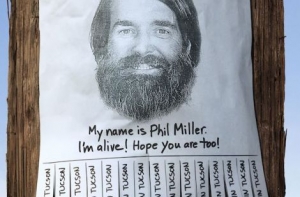 My name is Phil Miller.
I'm alive! Hope you are too!
TUCSON
TUCSON
IN TUCSON
IN TUCSON
IN TUCSON
IN TUCSON
IN TUCSON
IN TUCSON
IN TUCSON
IN TUCSON
IN TUCSON
TUCSON